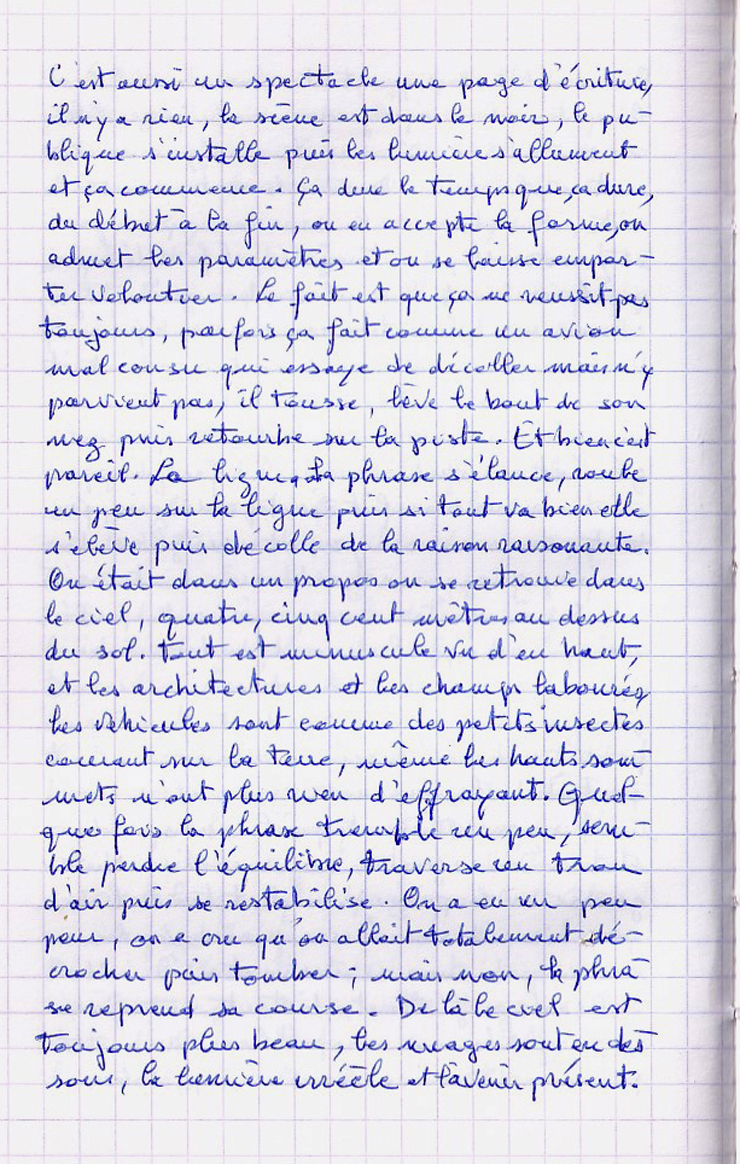 C'est aussi un spectacle une page d'écriture,
il n'y a rien, la scène est dans le noir, le pu-
blique s'installe puis les lumière s'allument
et ça commence. Ça dure le temps que ça dure,
du début à la fin, on en accepte la forme, on
admet les paramètres et on se laisse empor-
ter volontier. Le fait est que ça ne reussit pas
toujours, parfois ça fait comme un avion
mal consu qui essaye de décoller mais n'y
parvient pas, il tousse, lève le bout de son
nez puis retombe sur la piste. Et bien c'est
pareil. La phrase s'élance, roule
un peu sur la ligne puis si tout va bien elle
s'elève puis décolle de la raison raisonante.
On était dans un propos on se retrouve dans
le ciel, quatre, cinq cent mètres au dessus
du sol. Tout est minuscule vu d'en haut,
et les architectures et les champs labourés
les véhicules sont comme des petits insectes
courant sur la terre, même les hauts som-
mets n'ont plus rien d'effrayant. Quel-
que fois la phrase tremble un peu, sem-
ble perdre l'équilibre, traverse un trou
d'air puis se restabilise. On a eu un peu
peur, on a cru qu'on allait totalement dé-
crocher puis tomber ; mais non, la phra-
se reprend sa course. De là le ciel est
toujours plus beau, les nuages sont en des-
sous, la lumière irréelle et l'avenir présent.